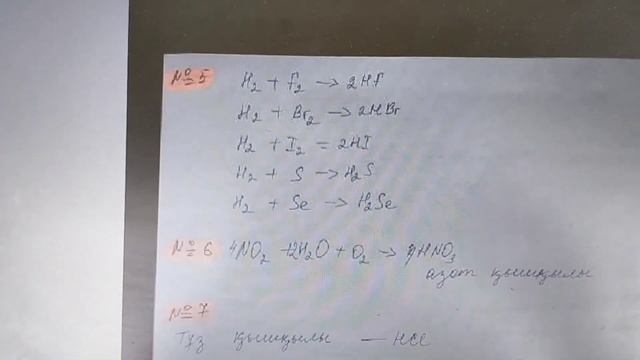 №5 H₂ + F₂ → 2HF
H₂ + Br₂ → 2HBr
H₂ + I₂ = 2HI
H₂ + S → H₂S
H₂ + Se → H₂Se
№6 4NO₂ + 2H₂O + O₂ → 4HNO₃
азот қышқылы
№7
Тұз қышқылы — HCl